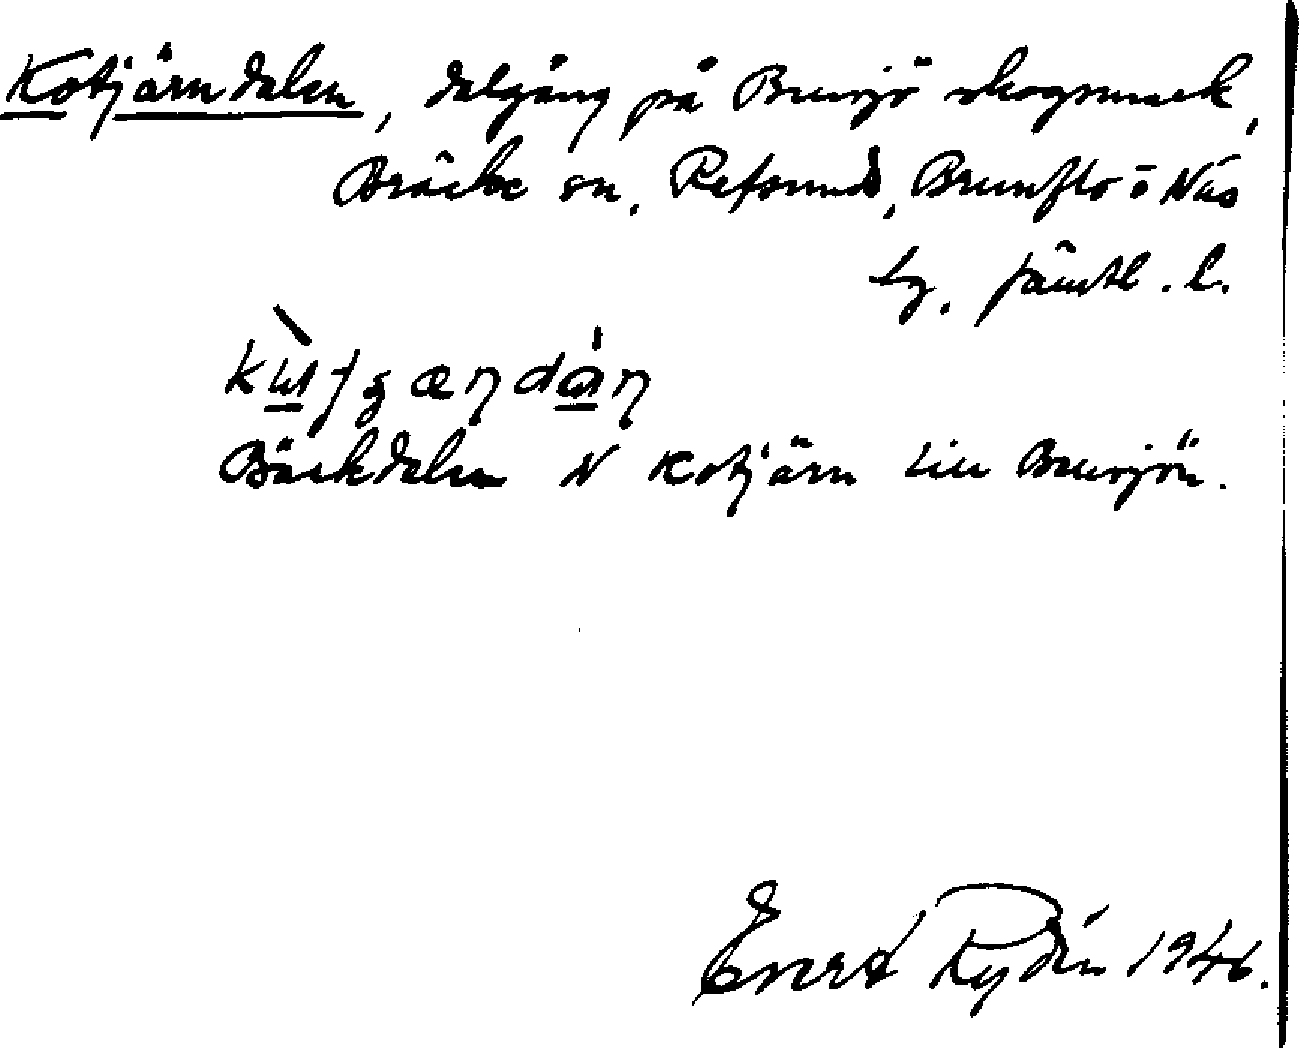 Kotjärndalen, dalgång på Bensjö skogsmark,
Bräcke sn, Refsunds, Brunflo o Näs
tg. Jämtl. l.
Bäckdalen N Kotjärn till Bensjön.
Evert Rydén 1946.